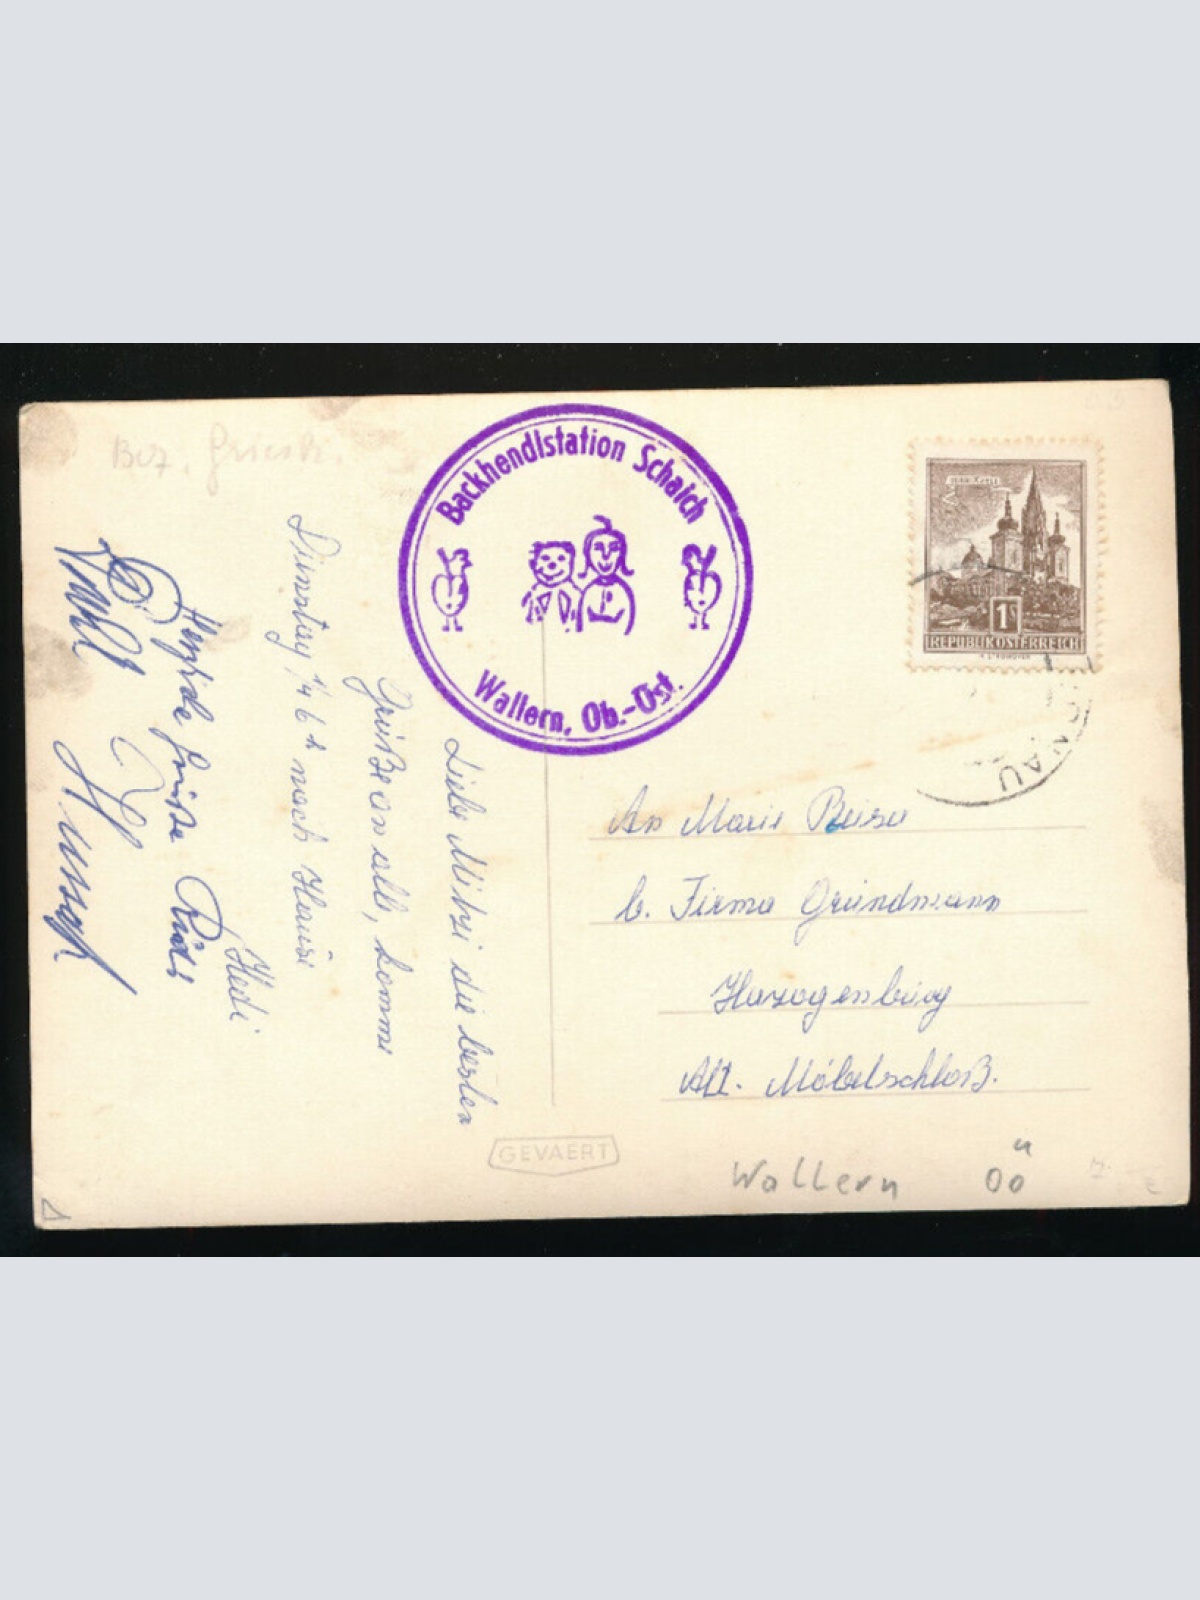 Backhendlstation Schaich
Wallern, Ob.-Öst.
Bez. Griesk.
MARIAZELL
1S
REPUBLIK ÖSTERREICH
NAU
Liebe Mitzi die besten
Grüße an alle, komme
Dienstag ½ 6 h nach Hause
Hedi
Herzliche Grüße
An Marie
b. Firma Grundmann
Herzogenburg
Abt. Möbelschloß.
GEVAERT
Wallern OÖ